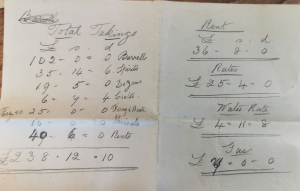 Total Takings
£ s. d
102 - 0 = 0 Barrell
35 - 14 - 6 Spirits
19 - 5 = 0
6 - 4 = 4
25 - 0 - 0
16 - 0 - 0
40 - 6 = 0
£ 238 - 12 - 10
Rent
£ s. d
36 - 8 - 0
Rates
£ 25 - 4 - 0
Water Rate
£ 4 - 11 - 8
Gas
£ - 0 - 0